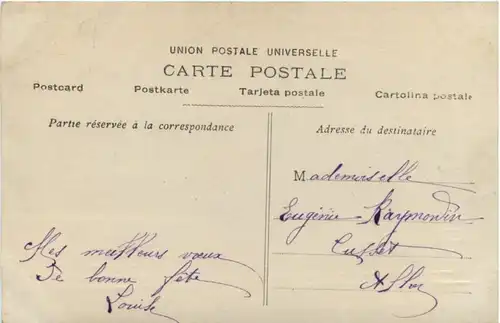 UNION POSTALE UNIVERSELLE
CARTE POSTALE
Postcard Postkarte Tarjeta postale Cartolina postale
Partie réservée à la correspondance
Mes meilleurs vœux
De bonne fête
Louise
Adresse du destinataire
Mademoiselle
Eugénie Raymondin
Cusset
Allier